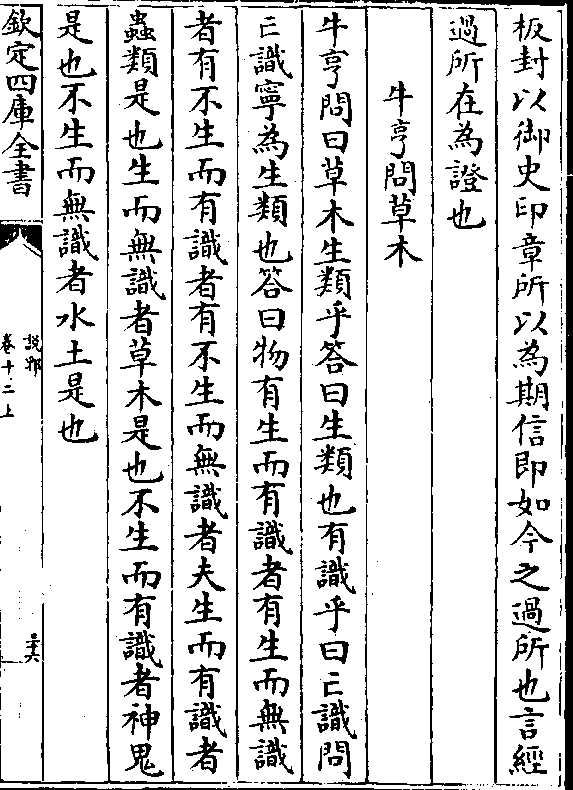 板封以御史印章所以為期信即如今之過所也言經
過所在為證也
牛亨問草木
牛亨問曰草木生類乎答曰生類也有識乎曰亡識問
亡識寧為生類也答曰物有生而有識者有生而無識
者有不生而有識者有不生而無識者夫生而有識者
蟲類是也生而無識者草木是也不生而有識者神鬼
是也不生而無識者水土是也
欽定四庫全書
說郛
卷十二上
三十六